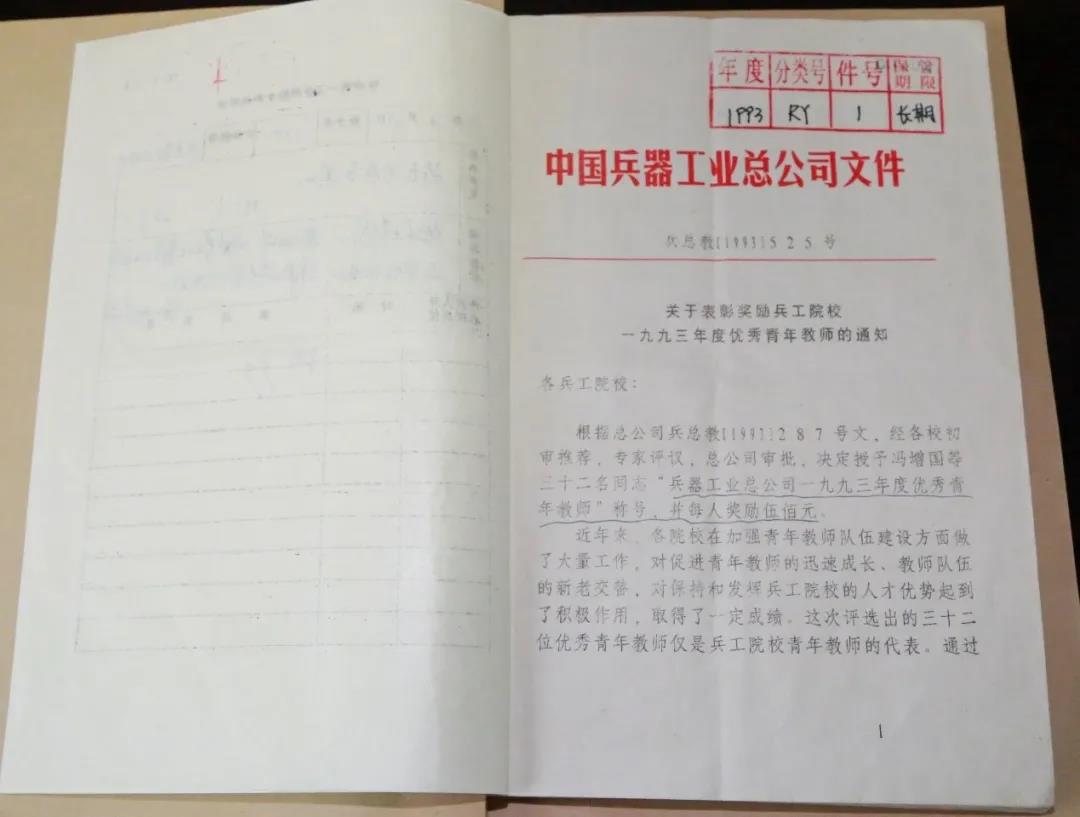 年度 分类号 件号 保管期限
1993 RY 1 长期
中国兵器工业总公司文件
兵总教[1993]525号
关于表彰奖励兵工院校
一九九三年度优秀青年教师的通知
各兵工院校：
根据总公司兵总教[1991]287号文，经各校初
审推荐，专家评议，总公司审批，决定授予冯增国等
三十二名同志“兵器工业总公司一九九三年度优秀青
年教师”称号，并每人奖励伍佰元。
近年来，各院校在加强青年教师队伍建设方面做
了大量工作，对促进青年教师的迅速成长、教师队伍
的新老交替，对保持和发挥兵工院校的人才优势起到
了积极作用，取得了一定成绩。这次评选出的三十二
位优秀青年教师仅是兵工院校青年教师的代表。通过
1